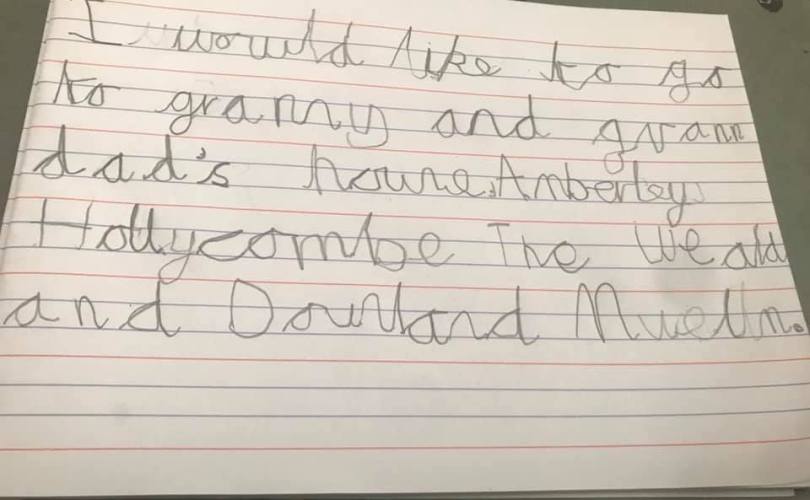 I would like to go
to granny and grann
dad's house, Amberley
Hollycombe The Weald
and Downland Muelm.